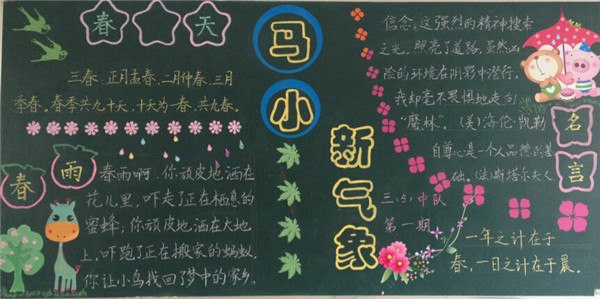 春天
三春:正月孟春,二月仲春,三月
季春。春季共九十天,十天为一春,共九春。
春雨
春雨啊,你顽皮地洒在
花儿里,吓走了正在栖息的
蜜蜂;你顽皮地洒在大地
上,吓跑了正在搬家的蚂蚁,
你让小鸟找回了梦中的家乡。
马小
新气象
信念,这强烈的精神搜索
之光,照亮了道路,虽然凶
险的环境在阴影中潜行,
我却毫不畏惧地走向
“魔林”。(美)海伦·凯勒
名言
自尊心是一个人品德的基
础。(法)斯塔尔夫人
三.(5)中队
第一期
一年之计在于
春,一日之计在于晨。